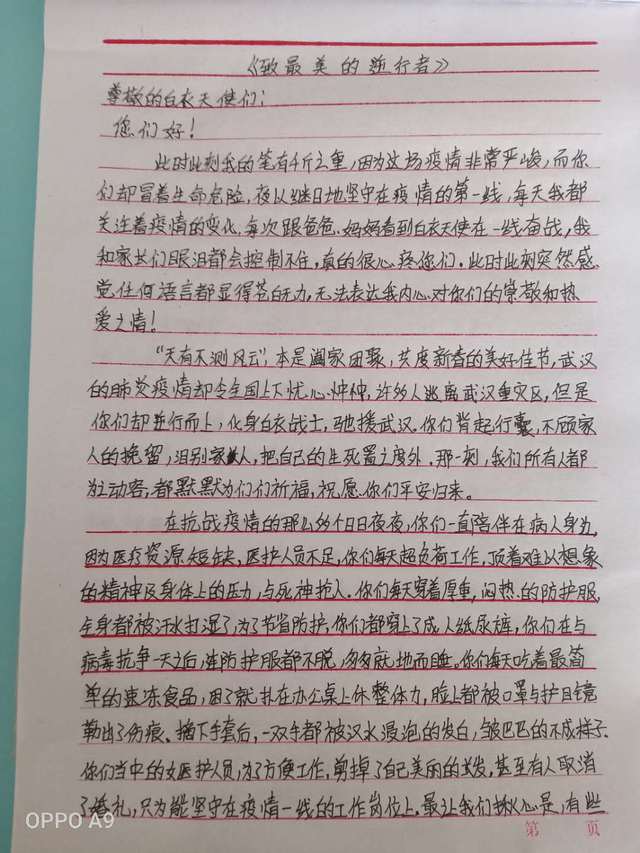 《致最美的逆行者》
尊敬的白衣天使们:
您们好!
此时此刻我的笔有千斤之重,因为这场疫情非常严峻,而你
们却冒着生命危险,夜以继日地坚守在疫情的第一线,每天我都
关注着疫情的变化,每次跟爸爸、妈妈看到白衣天使在一线奋战,我
和家长们眼泪都会控制不住,真的很心疼您们.此时此刻突然感
觉任何语言都显得苍白无力,无法表达我内心对你们的崇敬和热
爱之情!
“天有不测风云”,本是阖家团聚,共度新春的美好佳节,武汉
的肺炎疫情却令全国上下忧心忡忡,许多人逃离武汉重灾区,但是
你们却逆行而上,化身白衣战士,驰援武汉.你们背起行囊,不顾家
人的挽留,泪别家人,把自己的生死置之度外.那一刻,我们所有人都
为之动容,都默默为们们祈福,祝愿你们平安归来。
在抗战疫情的那么多个日日夜夜,你们一直陪伴在病人身边,
因为医疗资源短缺,医护人员不足,你们每天超负荷工作,顶着难以想象
的精神及身体上的压力,与死神抢人.你们每天穿着厚重,闷热的防护服,
全身都被汗水打湿了,为了节省防护,你们都穿上了成人纸尿裤,你们在与
病毒抗争一天之后,连防护服都不脱,匆匆就地而睡.你们每天吃着最简
单的速冻食品,困了就扑在办公桌上休整体力,脸上都被口罩与护目镜
勒出了伤痕.摘下手套后,一双手都被汉水浸泡的发白,皱巴巴的不成样子.
你们当中的女医护人员,为了方便工作,剪掉了自己美丽的长发,甚至有人取消
了婚礼,只为能坚守在疫情一线的工作岗位上.最让我们揪心是,有些
第 页
OPPO A9